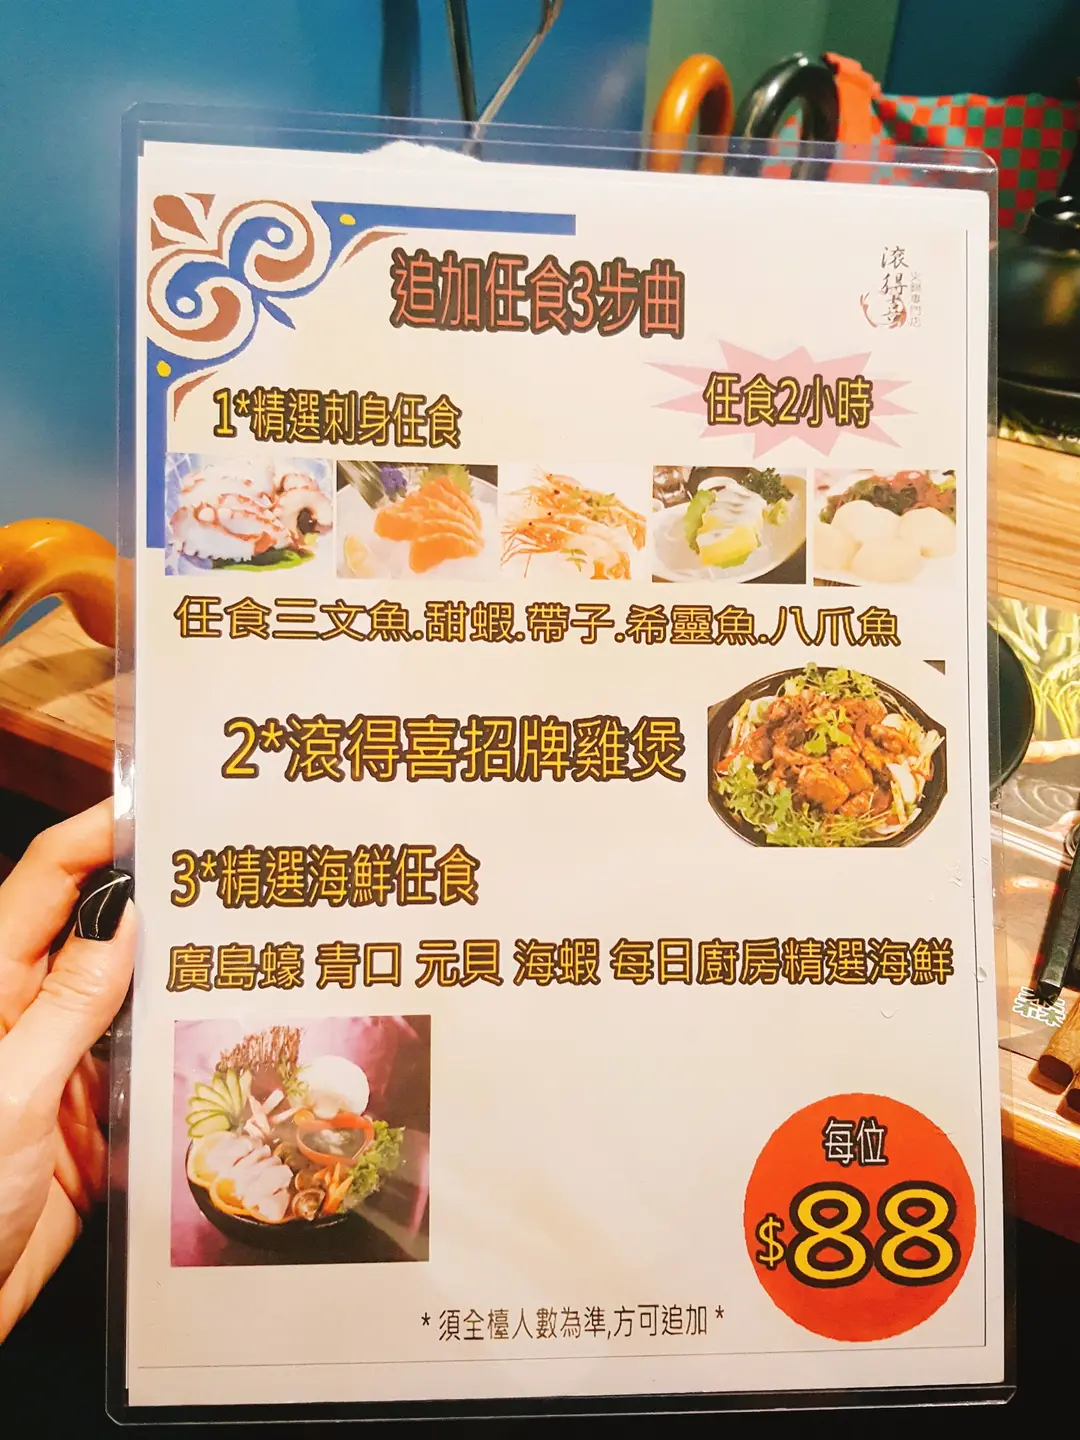 追加任食3步曲
滾得喜
火鍋專門店
任食2小時
1*精選刺身任食
任食三文魚.甜蝦.帶子.希靈魚.八爪魚
2*滾得喜招牌雞煲
3*精選海鮮任食
廣島蠔 青口 元貝 海蝦 每日廚房精選海鮮
每位
$88
* 須全檯人數為準,方可追加 *